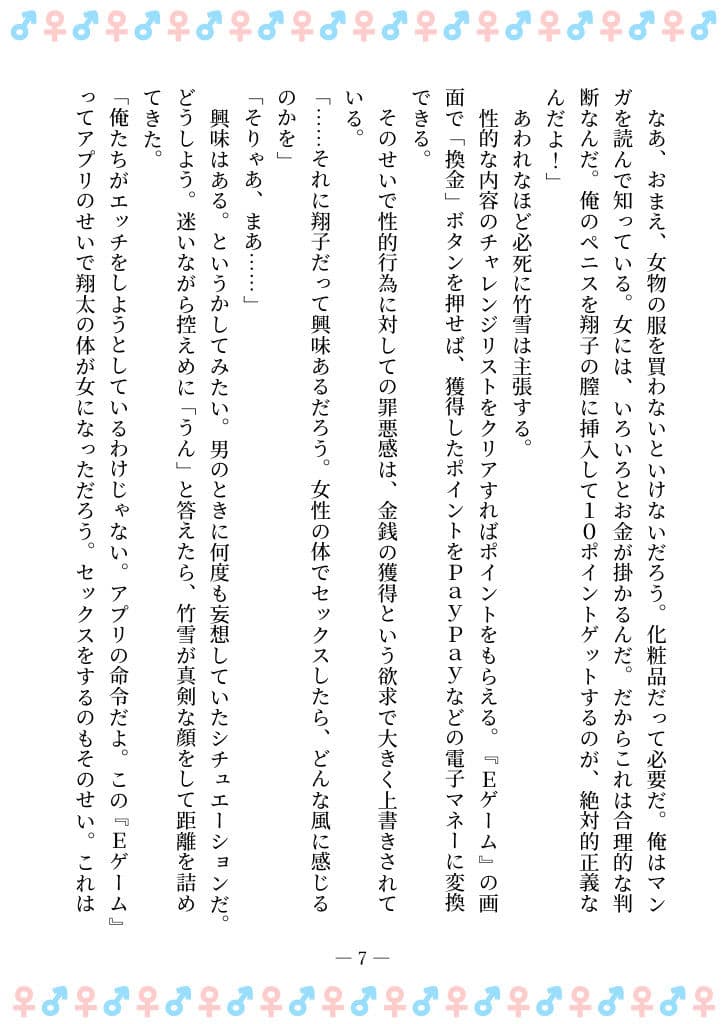 なあ、おまえ、女物の服を買わないといけないだろう。化粧品だって必要だ。俺はマン
ガを読んで知っている。女には、いろいろとお金が掛かるんだ。だからこれは合理的な判
断なんだ。俺のペニスを翔子の膣に挿入して１０ポイントゲットするのが、絶対的正義な
んだよ！」
あわれなほど必死に竹雪は主張する。
性的な内容のチャレンジリストをクリアすればポイントをもらえる。『Ｅゲーム』の画
面で「換金」ボタンを押せば、獲得したポイントをＰａｙＰａｙなどの電子マネーに変換
できる。
そのせいで性的行為に対しての罪悪感は、金銭の獲得という欲求で大きく上書きされて
いる。
「……それに翔子だって興味あるだろう。女性の体でセックスしたら、どんな風に感じる
のかを」
「そりゃあ、まあ……」
興味はある。というかしてみたい。男のときに何度も妄想していたシチュエーションだ。
どうしよう。迷いながら控えめに「うん」と答えたら、竹雪が真剣な顔をして距離を詰め
てきた。
「俺たちがエッチをしようとしているわけじゃない。アプリの命令だよ。この『Ｅゲーム』
ってアプリのせいで翔太の体が女になっただろう。セックスをするのもそのせい。これは
― 7 ―